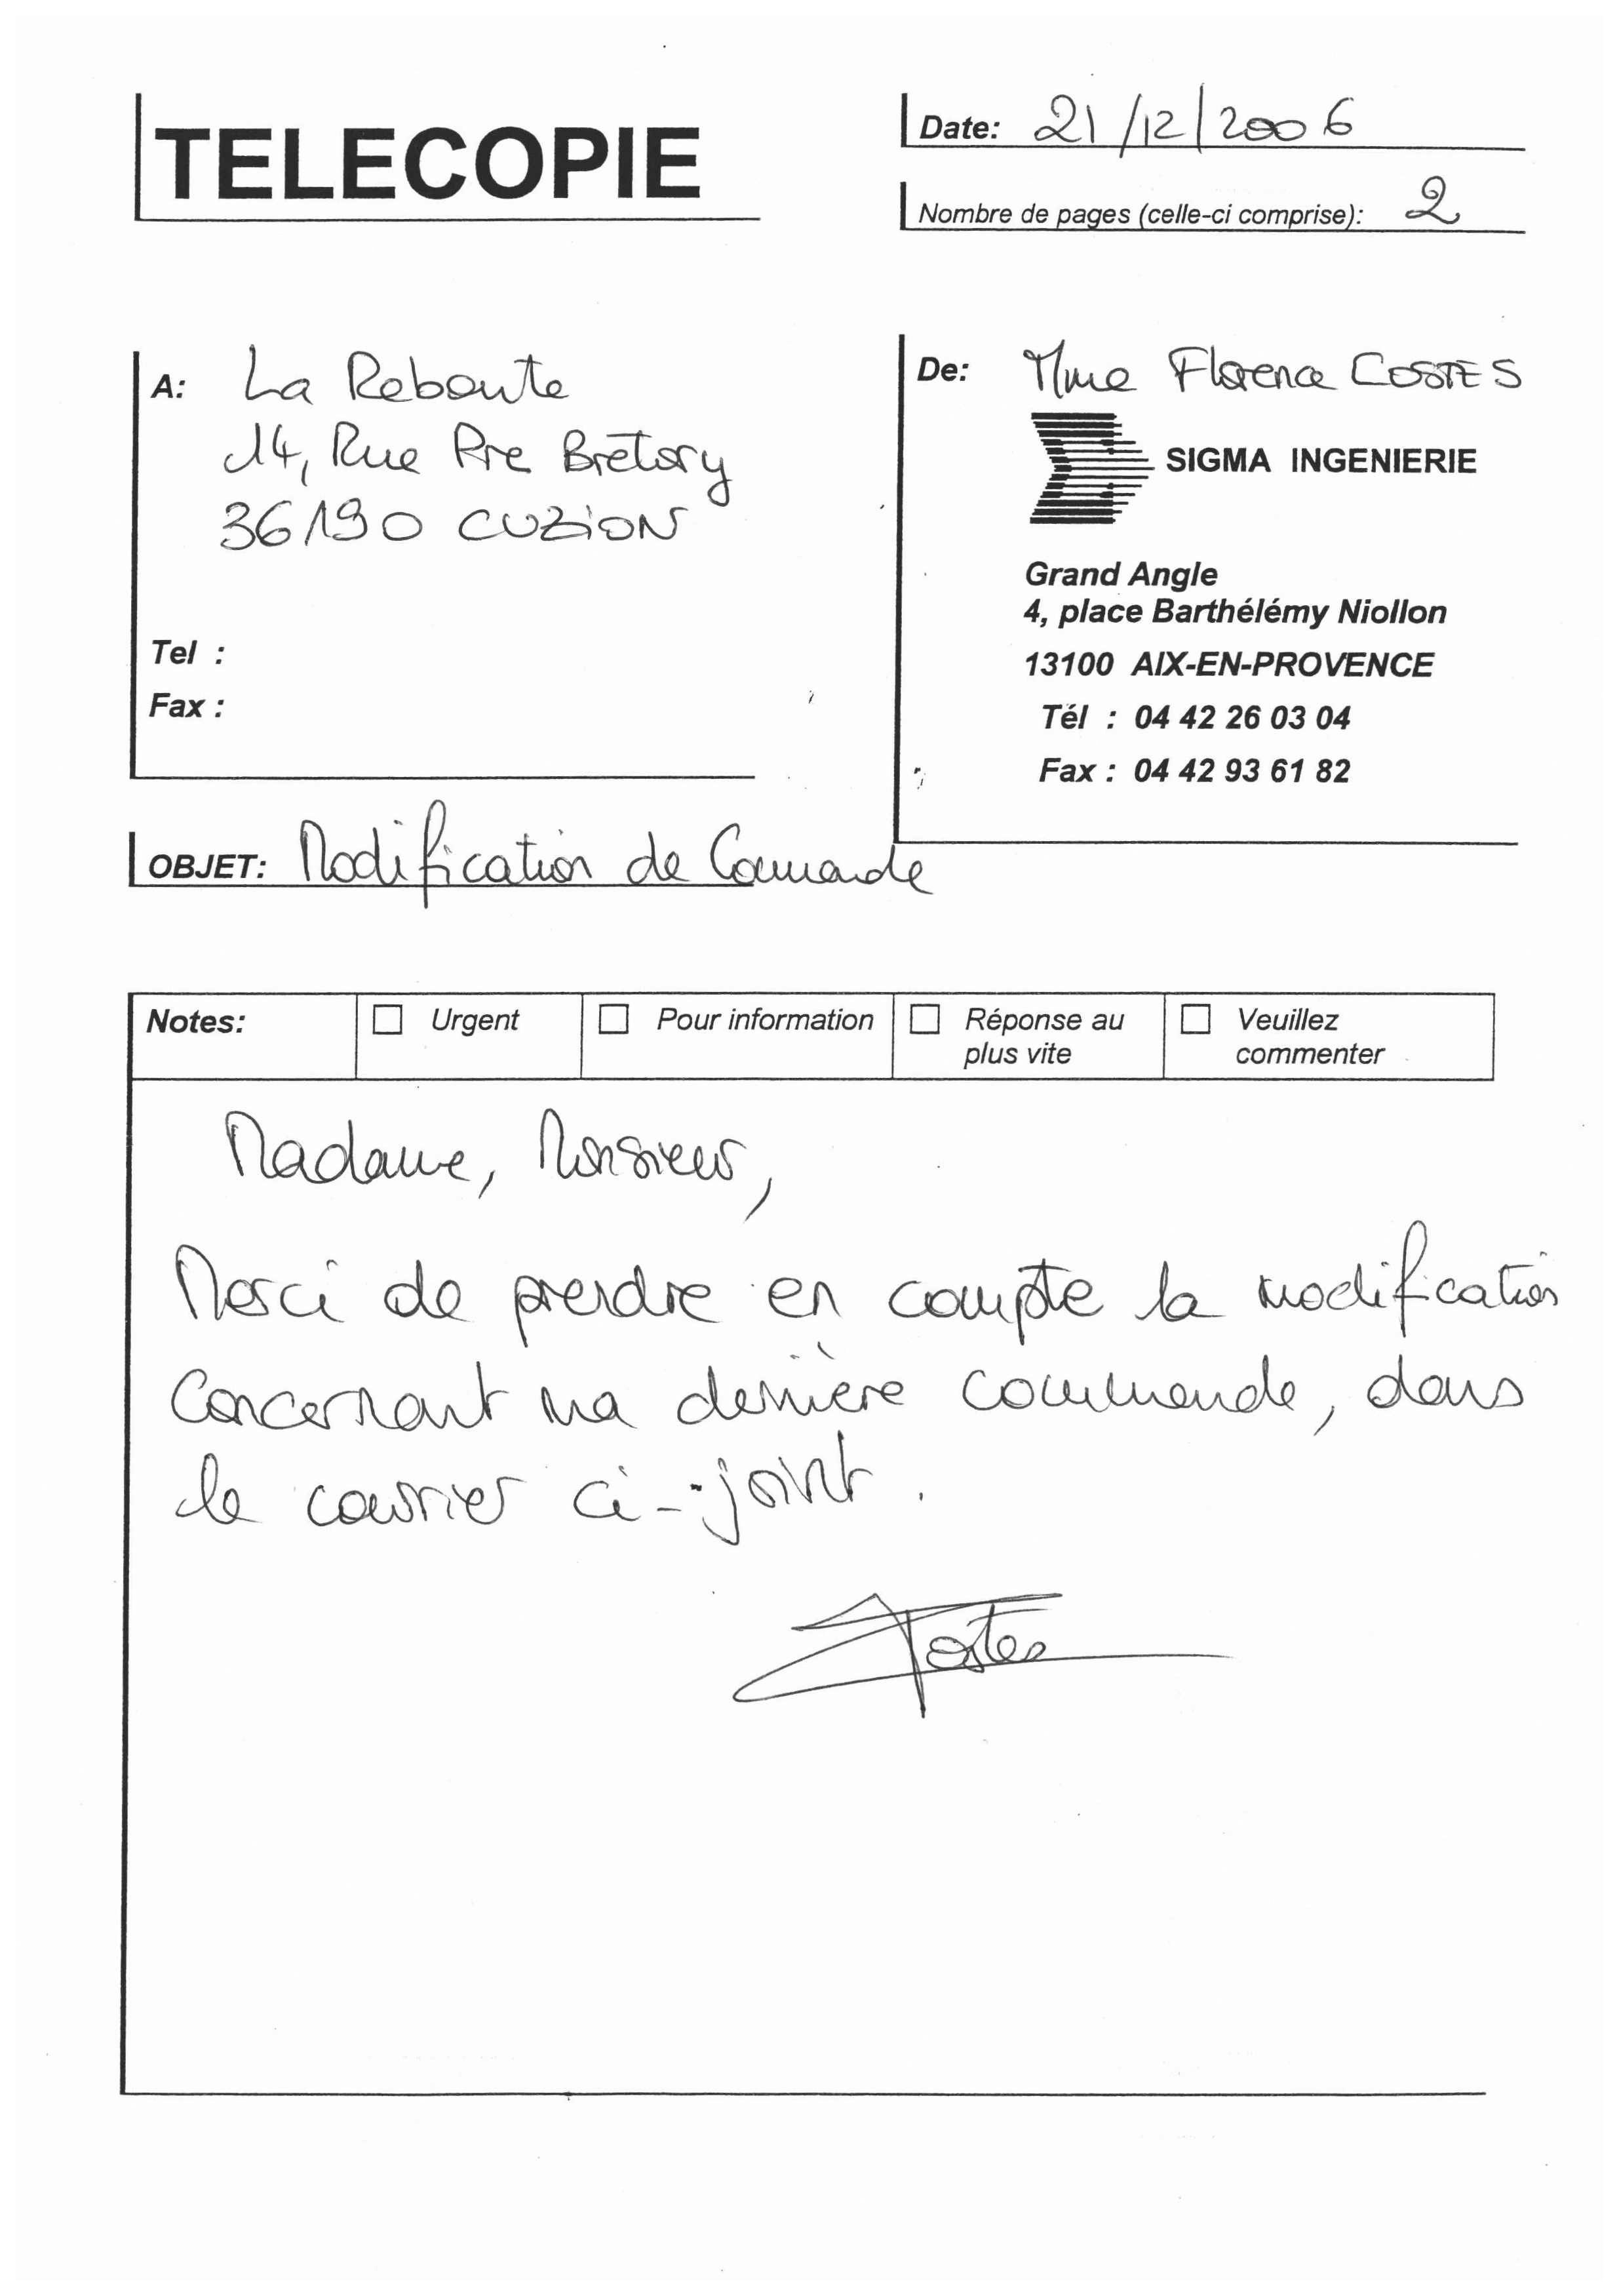 TELECOPIE
Date: 21/12/2006
Nombre de pages (celle-ci comprise): 2
A: La Reboute
14, Rue Pre Bretory
36190 CUZION
Tel :
Fax :
De: Mme Florence COSTES
SIGMA INGENIERIE
Grand Angle
4, place Barthélémy Niollon
13100 AIX-EN-PROVENCE
Tél : 04 42 26 03 04
Fax : 04 42 93 61 82
OBJET: Modification de Commande
Notes:
Urgent
Pour information
Réponse au
plus vite
Veuillez
commenter
Madame, Monsieur,
Merci de prendre en compte la modification
concernant ma dernière commande, dans
le courrier ci-joint.
Costes